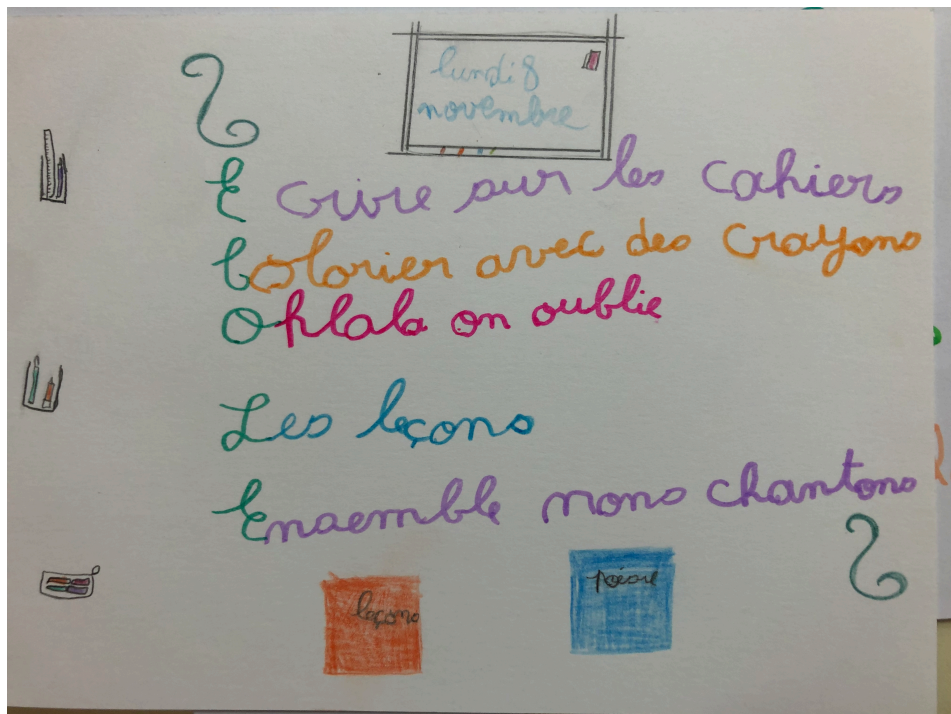 lundi 8
novembre
Ecrire sur les cahiers
Colorier avec des crayons
Ohlala on oublie
Les leçons
Ensemble nons chantons
leçons
poésie